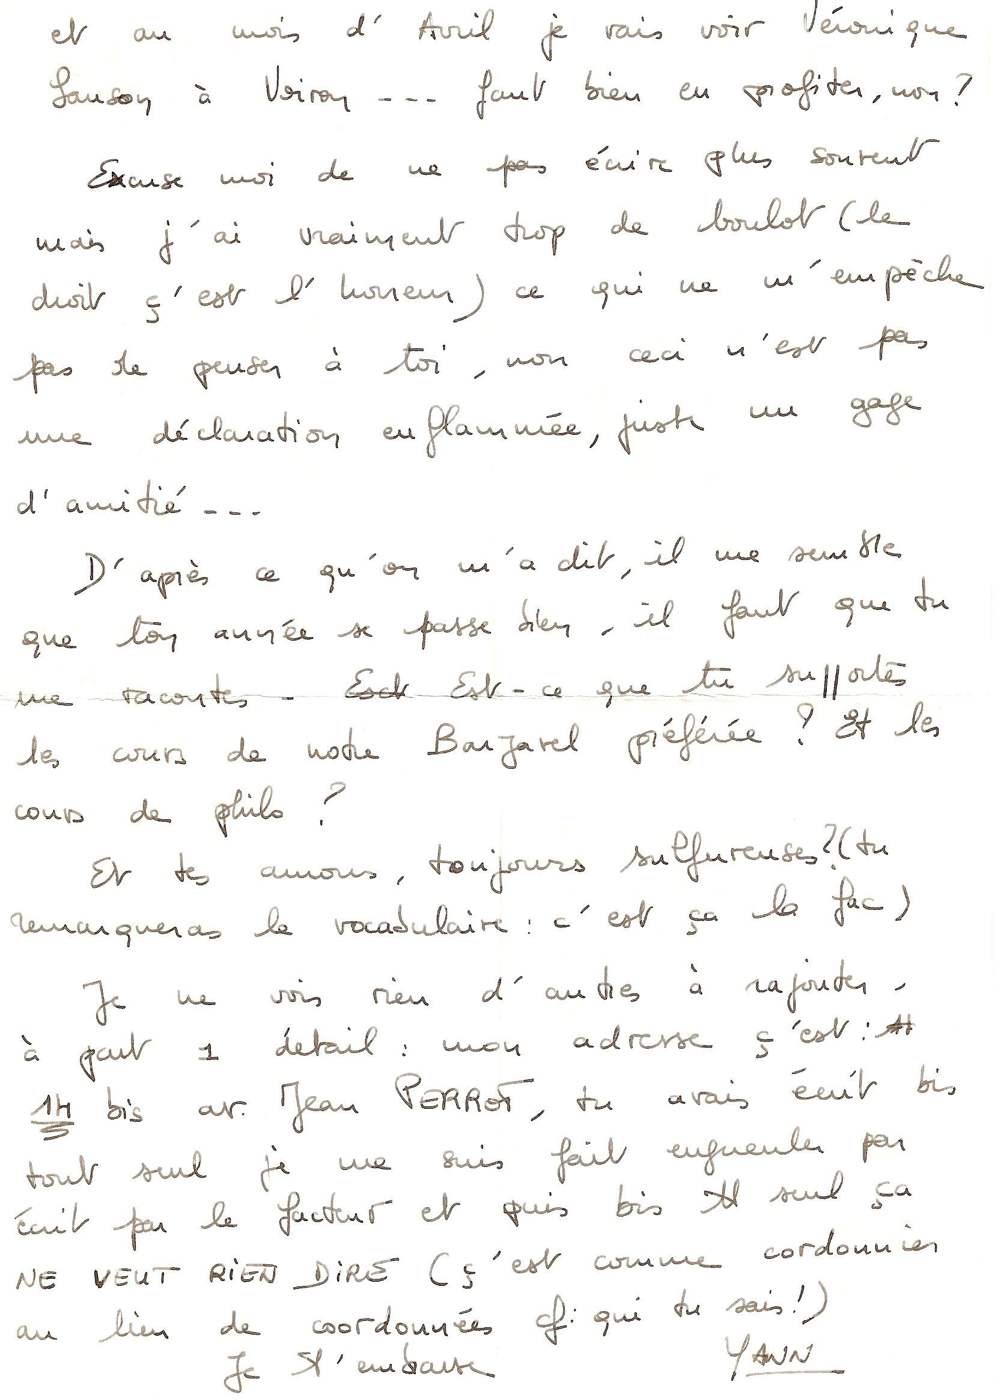 et au mois d'Avril je vais voir Véronique
Sanson à Voiron --- faut bien en profiter, non?
Excuse moi de ne pas écrire plus souvent
mais j'ai vraiment trop de boulot (le
droit ç'est l'horreur) ce qui ne m'empèche
pas de penser à toi, non ceci n'est pas
une déclaration enflammée, juste un gage
d'amitié ---
D'après ce qu'on m'a dit, il me semble
que ton année se passe bien, il faut que tu
me racontes - Est-ce que tu supportes
les cours de notre Barjavel préférée ? Et les
cours de philo ?
Et tes amours, toujours sulfureuses? (tu
remarqueras le vocabulaire : c'est ça la fac)
Je ne vois rien d'autres à rajouter,
à part 1 détail : mon adresse ç'est :
14 bis av. Jean PERROT, tu avais écrit bis
tout seul je me suis fait engueuler par
écrit par le facteur et puis bis tt seul ça
NE VEUT RIEN DIRE (ç'est comme cordonnier
au lieu de coordonnées cf: qui tu sais!)
Je t'embrasse YANN